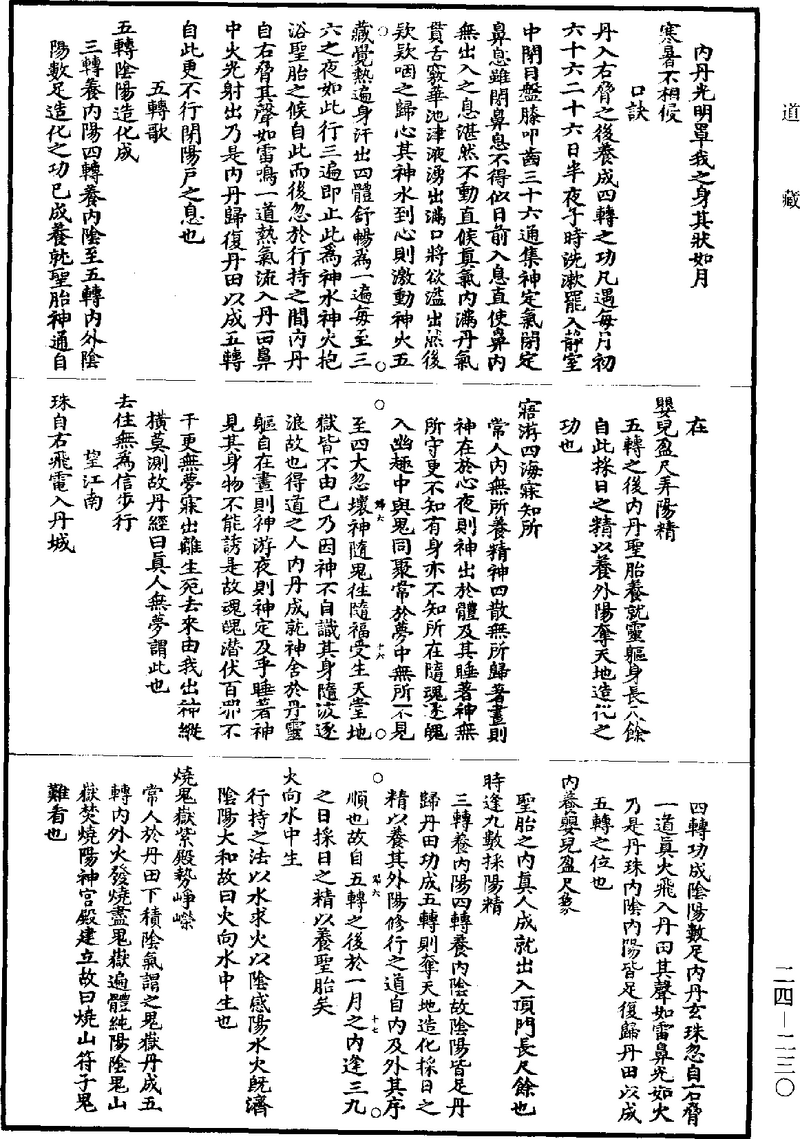 道藏
內丹光明罩我之身其狀如月
寒暑不相侵
口訣
丹入右脅之後養成四轉之功凡遇每月初
六十六二十六日半夜子時洗漱罷入靜室
中閉目盤膝叩齒三十六通集神定氣閉定
鼻息雖閉鼻息不得似日前入息直使鼻內
無出入之息湛然不動直候真氣內滿丹氣
貫舌竅華池津液湧出滿口將欲溢出然後
欻欻咽之歸心其神水到心則激動神火五
藏覺熱遍身汗出四體舒暢為一遍每至三
六之夜如此行三遍即止此為神水神火抱
浴聖胎之候自此而後忽於行持之間內丹
自右脅其聲如雷鳴一道熱氣流入丹田鼻
中火光射出乃是內丹歸復丹田以成五轉
自此更不行閉陽戶之息也
五轉歌
五轉陰陽造化成
三轉養內陽四轉養內陰至五轉內外陰
陽數足造化之功已成養就聖胎神通自
在
嬰兒盈尺弄陽精
五轉之後內丹聖胎養就靈軀身長尺餘
自此採日之精以養外陽奪天地造化之
功也
寤游四海寐知所
常人內無所養精神四散無所歸著晝則
神在於心夜則神出於體及其睡著神無
所守更不知有身亦不知所在隨魂逐魄
入幽趣中與鬼同聚常於夢中無所不見
至四大忽壞神隨鬼往隨福受生天堂地
獄皆不由己乃因神不自識其身隨波逐
浪故也得道之人內丹成就神舍於丹靈
軀自在晝則神游夜則神定及乎睡著神
見其身物不能誘是故魂魄潛伏百邪不
干更無夢寐出離生死去來由我出神縱
橫莫測故丹經曰真人無夢謂此也
去住無為信步行
望江南
珠自右飛電入丹城
四轉功成陰陽數足內丹玄珠忽自右脅
一道真火飛入丹田其聲如雷鼻光如火
乃是丹珠內陰內陽皆足復歸丹田以成
五轉之位也
內養嬰兒盈尺餘
聖胎之內真人成就出入頂門長尺餘也
時逢九數採陽精
三轉養內陽四轉養內陰故陰陽皆足丹
歸丹田功成五轉則奪天地造化採日之
精以養其外陽修行之道自內及外其序
順也故自五轉之後於一月之內逢三九
之日採日之精以養聖胎矣
火向水中生
行持之法以水求火以陰感陽水火既濟
陰陽大和故曰火向水中生也
燒鬼嶽紫殿勢崢嶸
常人於丹田下積陰氣謂之鬼嶽丹成五
轉內外火發燒盡鬼嶽遍體純陽陰鬼山
嶽焚燒陽神宮殿建立故曰燒山符子鬼
難看也
二四—二三〇